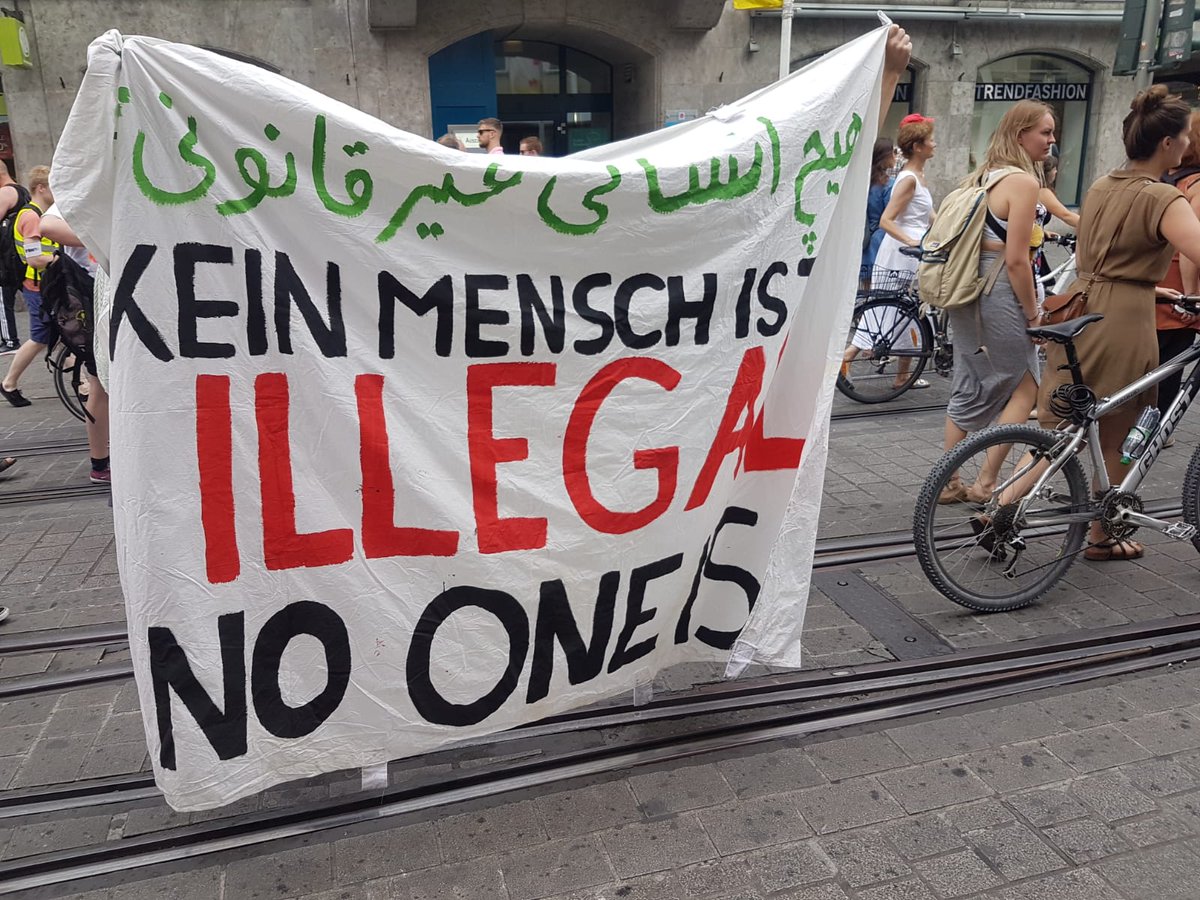 هیچ انسانی غیر قانونی
KEIN MENSCH IST
ILLEGAL
NO ONE IS
TRENDFASHION
GHOST